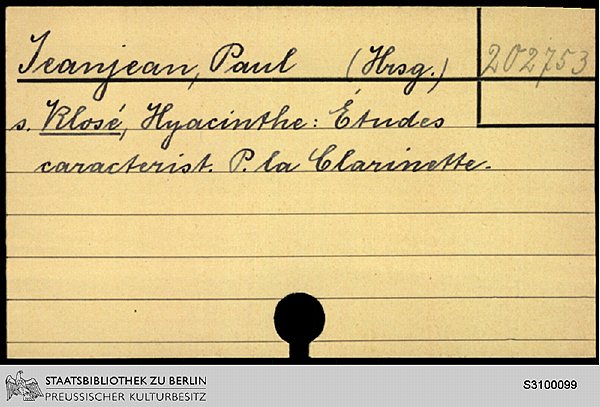 Jeanjean, Paul (Hrsg.) 202753
s. Klosé, Hyacinthe: Études
caracterist. P. la Clarinette.
STAATSBIBLIOTHEK ZU BERLIN
PREUSSISCHER KULTURBESITZ
S3100099